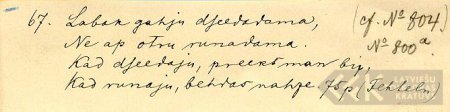 67. Labak gahju dseedadama, (cf. № 804.)
Ne ap otru runadama. № 800ª.
Kad dseedaju, preeks man bij,
Kad runaju, behdas nahze. 75p (Fehteln)